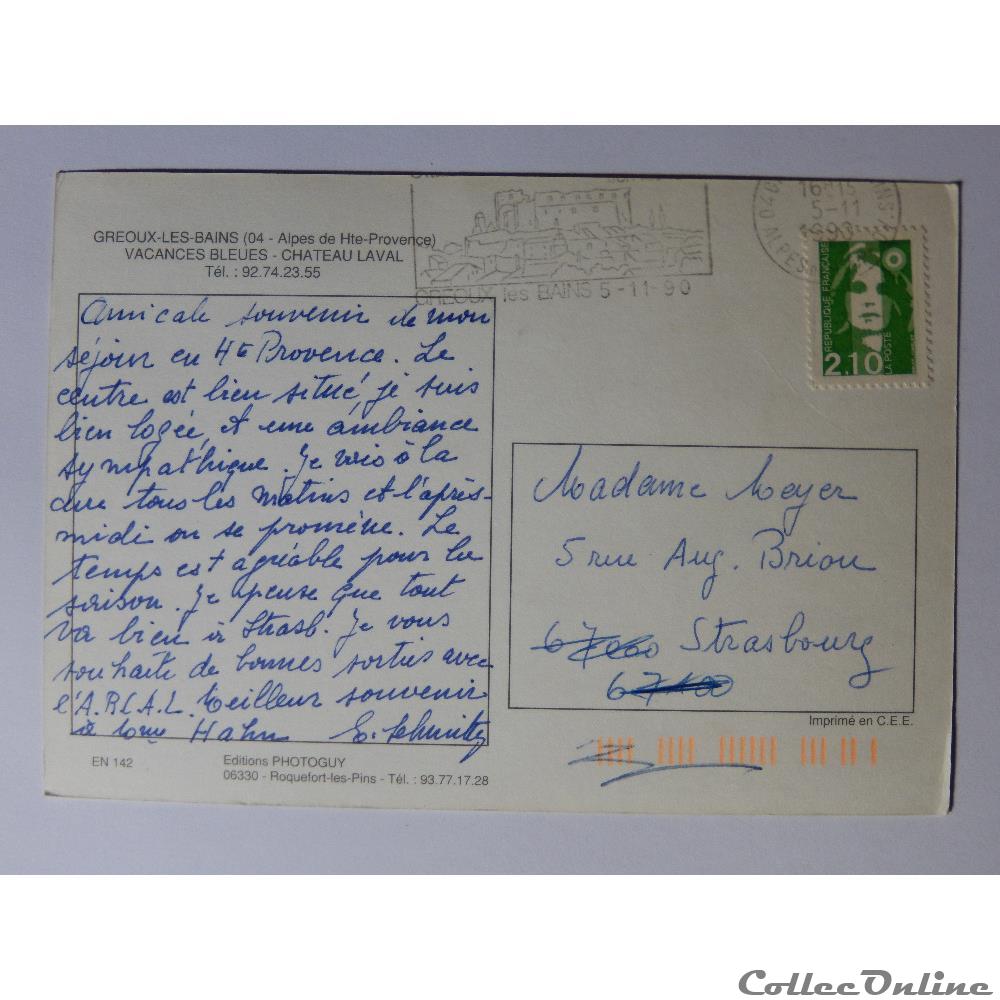 GREOUX-LES-BAINS (04 - Alpes de Hte-Provence)
VACANCES BLEUES - CHATEAU LAVAL
Tél. : 92.74.23.55
GREOUX les BAINS 5-11-90
16-15
5-11
ALPES
REPUBLIQUE FRANÇAISE
2,10
LA POSTE
Amicale souvenir de mon
séjour en Hte Provence. Le
centre est bien situé, je suis
bien logée, et une ambiance
sympathique. Je vois à la
cure tous les matins et l'après-
midi on se promène. Le
temps est agréable pour la
saison. Je pense que tout
va bien à Strasb. Je vous
souhaite de bonnes sorties avec
l'A.R.C.A.L. Meilleur souvenir
à Mme Hahn E. Schmitz
Madame Meyer
5 rue Aug. Briou
67000 Strasbourg
67100
Imprimé en C.E.E.
EN 142
Editions PHOTOGUY
06330 - Roquefort-les-Pins - Tél. : 93.77.17.28
CollecOnline